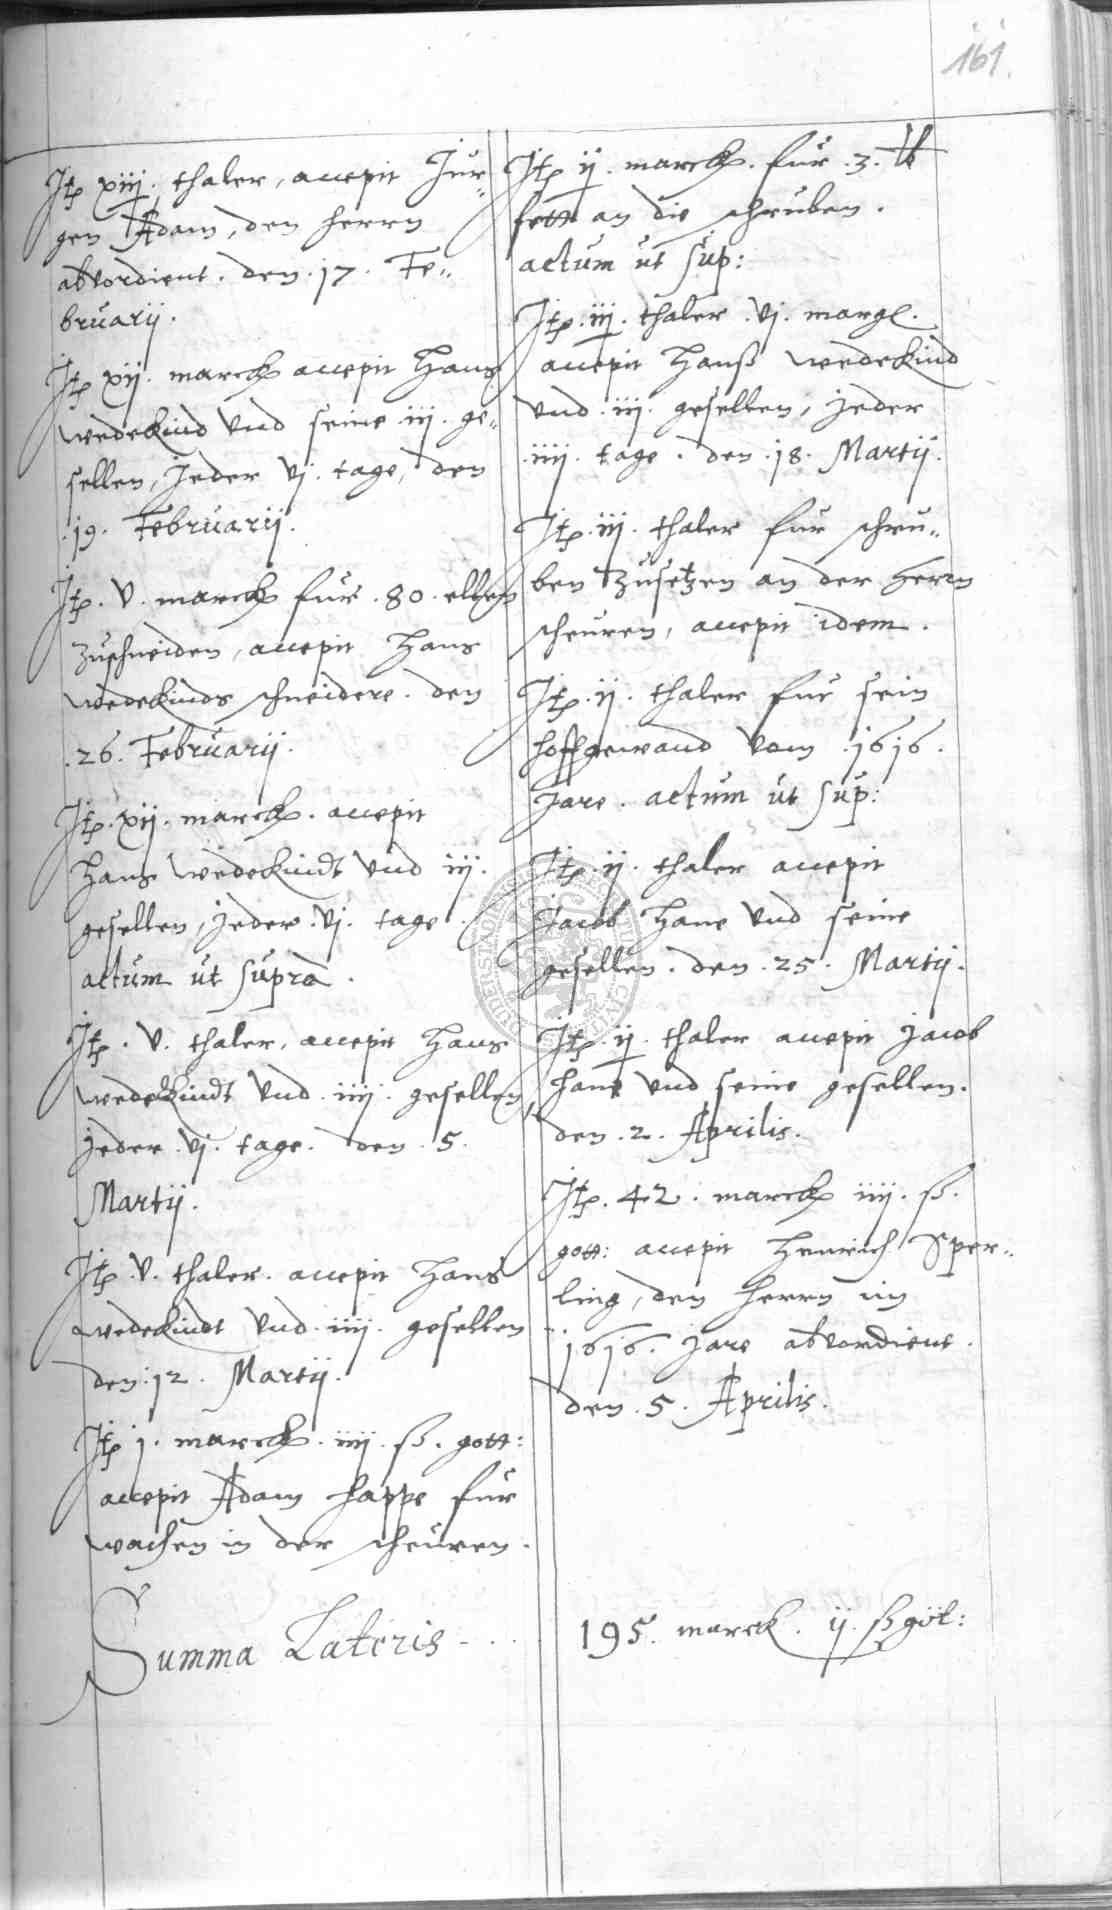 161.
Itp xiij. thaler, accepit Jür-
gen Adam, den herrn
abverdient. den .17. Fe-
bruarij.
Itp xij. marck accepit Hans
wedekind Vnd seine .iij. ge-
sellen, Jeder vj. tage, den
.19. Februarij.
Itp. V. marck für .80. ellen
Zuschneiden, accepit Hans
wedekinds schneidere. den
.26. Februarij.
Itp. xij. marck. accepit
Hans wedekindt Vnd iij.
gesellen, Jeder .vj. tage.
actum ut supra.
Itp. V. thaler, accepit Hans
wedekindt Vnd .iiij. gesellen,
Jeder .vj. tage. den .5.
Martij.
Itp .V. thaler. accepit Hans
wedekindt Vnd .iiij. gesellen
den .12. Martij.
Itp j. marck. iiij. ß. gott:
accepit Adam Happe für
wachen in der scheuren.
Itp ij. marck. für .3. ℔
fett an die schruben.
actum ut sup:
Itp. iij. thaler .vj. margl.
accepit Hanß wedekind
Vnd .iij. gesellen, Jeder
.iiij. tage. den .18. Martij.
Itp. iij. thaler für schru-
ben Zusetzen an der herrn
scheuren, accepit idem.
Itp. ij. thaler für sein
hoffgewand Vom .1616.
Jare. actum ut sup:
Itp. ij. thaler accepit
Jacob Hane Vnd seine
gesellen. den .25. Martij.
Itp. ij. thaler accepit Jacob
Hane Vnd seine gesellen.
den .2. Aprilis.
Itp. 42. marck iiij. ß.
gott: accepit Henrich Sper-
ling, den herrn im
1616. Jare abverdient.
den .5. Aprilis.
Summa Lateris - . . 195. marck. ij. ß göt: